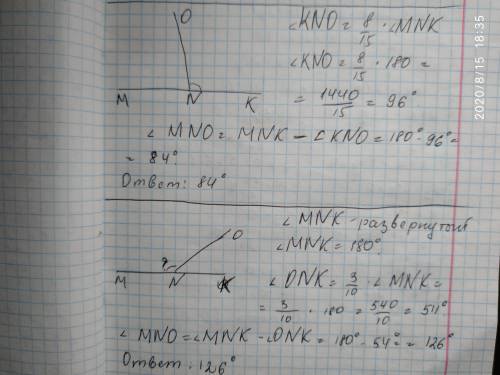 O
M N K
∠KNO = 8/15 · ∠MNK
∠KNO = 8/15 · 180 =
= 1440/15 = 96°
∠ MNO = MNK - ∠KNO = 180° - 96° =
= 84°.
Ответ: 84°
O
?
M N K
∠ MNK - развернутый
∠MNK = 180°.
∠ ONK = 3/10 · ∠ MNK =
= 3/10 · 180 = 540/10 = 54°
∠ MNO = ∠MNK - ∠ONK = 180° - 54° = 126°
Ответ: 126°
2020/8/15 18:35